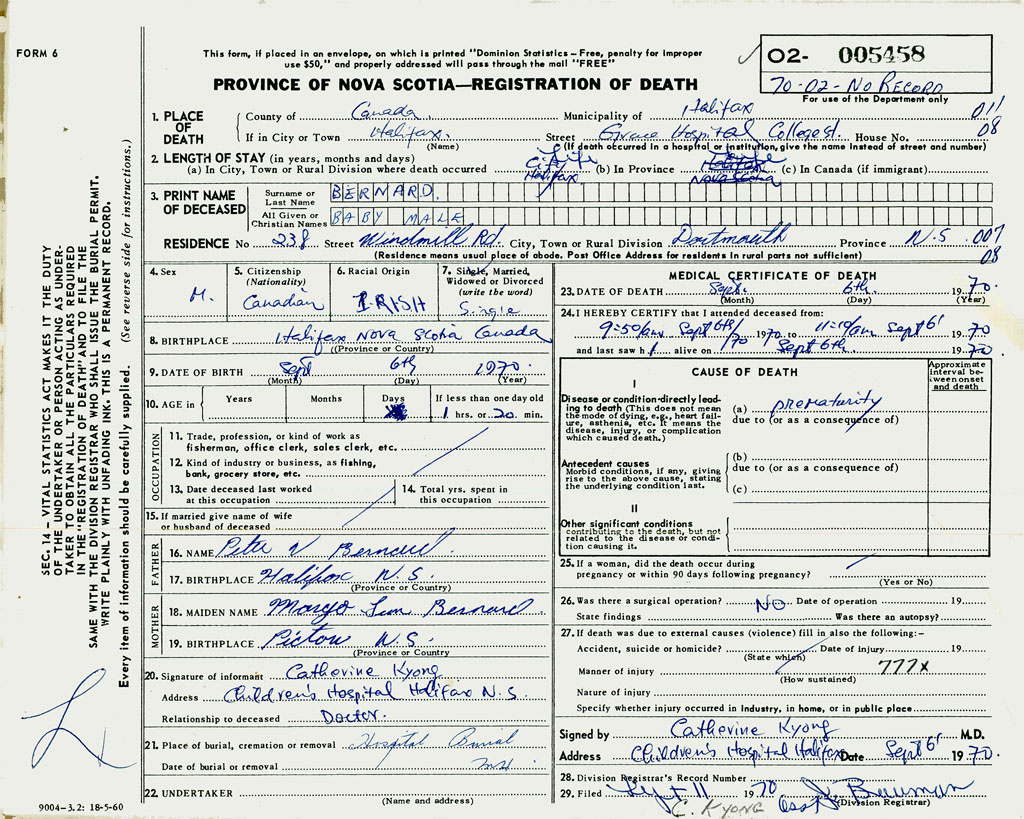 FORM 6
This form, if placed in an envelope, on which is printed "Dominion Statistics – Free, penalty for improper
use $50," and properly addressed will pass through the mail "FREE"
PROVINCE OF NOVA SCOTIA—REGISTRATION OF DEATH
02- 005458
70-02-No RECORD
For use of the Department only
1. PLACE OF DEATH
County of Canada Municipality of Halifax 011
If in City or Town Halifax. Street Grace Hospital College St. House No. 08
(Name) (If death occurred in a hospital or institution, give the name instead of street and number)
2. LENGTH OF STAY (in years, months and days)
(a) In City, Town or Rural Division where death occurred Halifax (b) In Province Nova Scotia (c) In Canada (if immigrant)
3. PRINT NAME OF DECEASED
Surname or Last Name BERNARD
All Given or Christian Names BABY MALE
RESIDENCE No 238 Street Windmill Rd. City, Town or Rural Division Dartmouth Province N.S 007
(Residence means usual place of abode. Post Office Address for residents in rural parts not sufficient) 08
4. Sex
M.
5. Citizenship
(Nationality)
Canadian
6. Racial Origin
IRISH
7. Single, Married,
Widowed or Divorced
(write the word)
Single
8. BIRTHPLACE Halifax Nova Scotia Canada
(Province or Country)
9. DATE OF BIRTH Sept 6th 1970
(Month) (Day) (Year)
10. AGE in
Years Months Days If less than one day old
1 hrs. or 20 min.
OCCUPATION
11. Trade, profession, or kind of work as
fisherman, office clerk, sales clerk, etc.
12. Kind of industry or business, as fishing,
bank, grocery store, etc.
13. Date deceased last worked
at this occupation
14. Total yrs. spent in
this occupation
15. If married give name of wife
or husband of deceased
FATHER
16. NAME Peter V Bernard
17. BIRTHPLACE Halifax N.S.
(Province or Country)
MOTHER
18. MAIDEN NAME Bernard
19. BIRTHPLACE Pictou N.S.
(Province or Country
20. Signature of informant Catherine Kyong
Address Children's Hospital Halifax N.S.
Relationship to deceased Doctor.
21. Place of burial, cremation or removal Hospital Burial
Date of burial or removal
22. UNDERTAKER
(Name and address)
MEDICAL CERTIFICATE OF DEATH
23. DATE OF DEATH Sept. 6th. 1970.
(Month) (Day) (Year)
24. I HEREBY CERTIFY that I attended deceased from:
9:50/am Sept 6th/70 1970 to 11:10/am Sept 6' 1970
and last saw h alive on Sept 6th. 1970.
CAUSE OF DEATH
Approximate interval between onset and death
I
Disease or condition directly leading to death (This does not mean the mode of dying, e.g., heart failure, asthenia, etc. It means the disease, injury, or complication which caused death.)
(a) prematurity
due to (or as a consequence of)
Antecedent causes
Morbid conditions, if any, giving rise to the above cause, stating the underlying condition last.
(b)
due to (or as a consequence of)
(c)
II
Other significant conditions
contributing to the death, but not related to the disease or condition causing it.
25. If a woman, did the death occur during
pregnancy or within 90 days following pregnancy?
(Yes or No)
26. Was there a surgical operation? No Date of operation 19
State findings Was there an autopsy?
27. If death was due to external causes (violence) fill in also the following:–
Accident, suicide or homicide? Date of injury 19
(State which)
Manner of injury 777x
(How sustained)
Nature of injury
Specify whether injury occurred in industry, in home, or in public place
Signed by Catherine Kyong M.D.
Address Children's Hospital Halifax Date Sept 6' 1970
28. Division Registrar's Record Number
29. Filed 11 1970
(Division Registrar)
C. KYONG
SEC. 14 – VITAL STATISTICS ACT MAKES IT THE DUTY
OF THE UNDERTAKER OR PERSON ACTING AS UNDER-
TAKER TO OBTAIN ALL THE PARTICULARS REQUIRED
IN THE "REGISTRATION OF DEATH" AND TO FILE THE
SAME WITH THE DIVISION REGISTRAR WHO SHALL ISSUE THE BURIAL PERMIT.
WRITE PLAINLY WITH UNFADING INK. THIS IS A PERMANENT RECORD.
Every item of information should be carefully supplied. (See reverse side for instructions.)
9004–3.2: 18-5-60